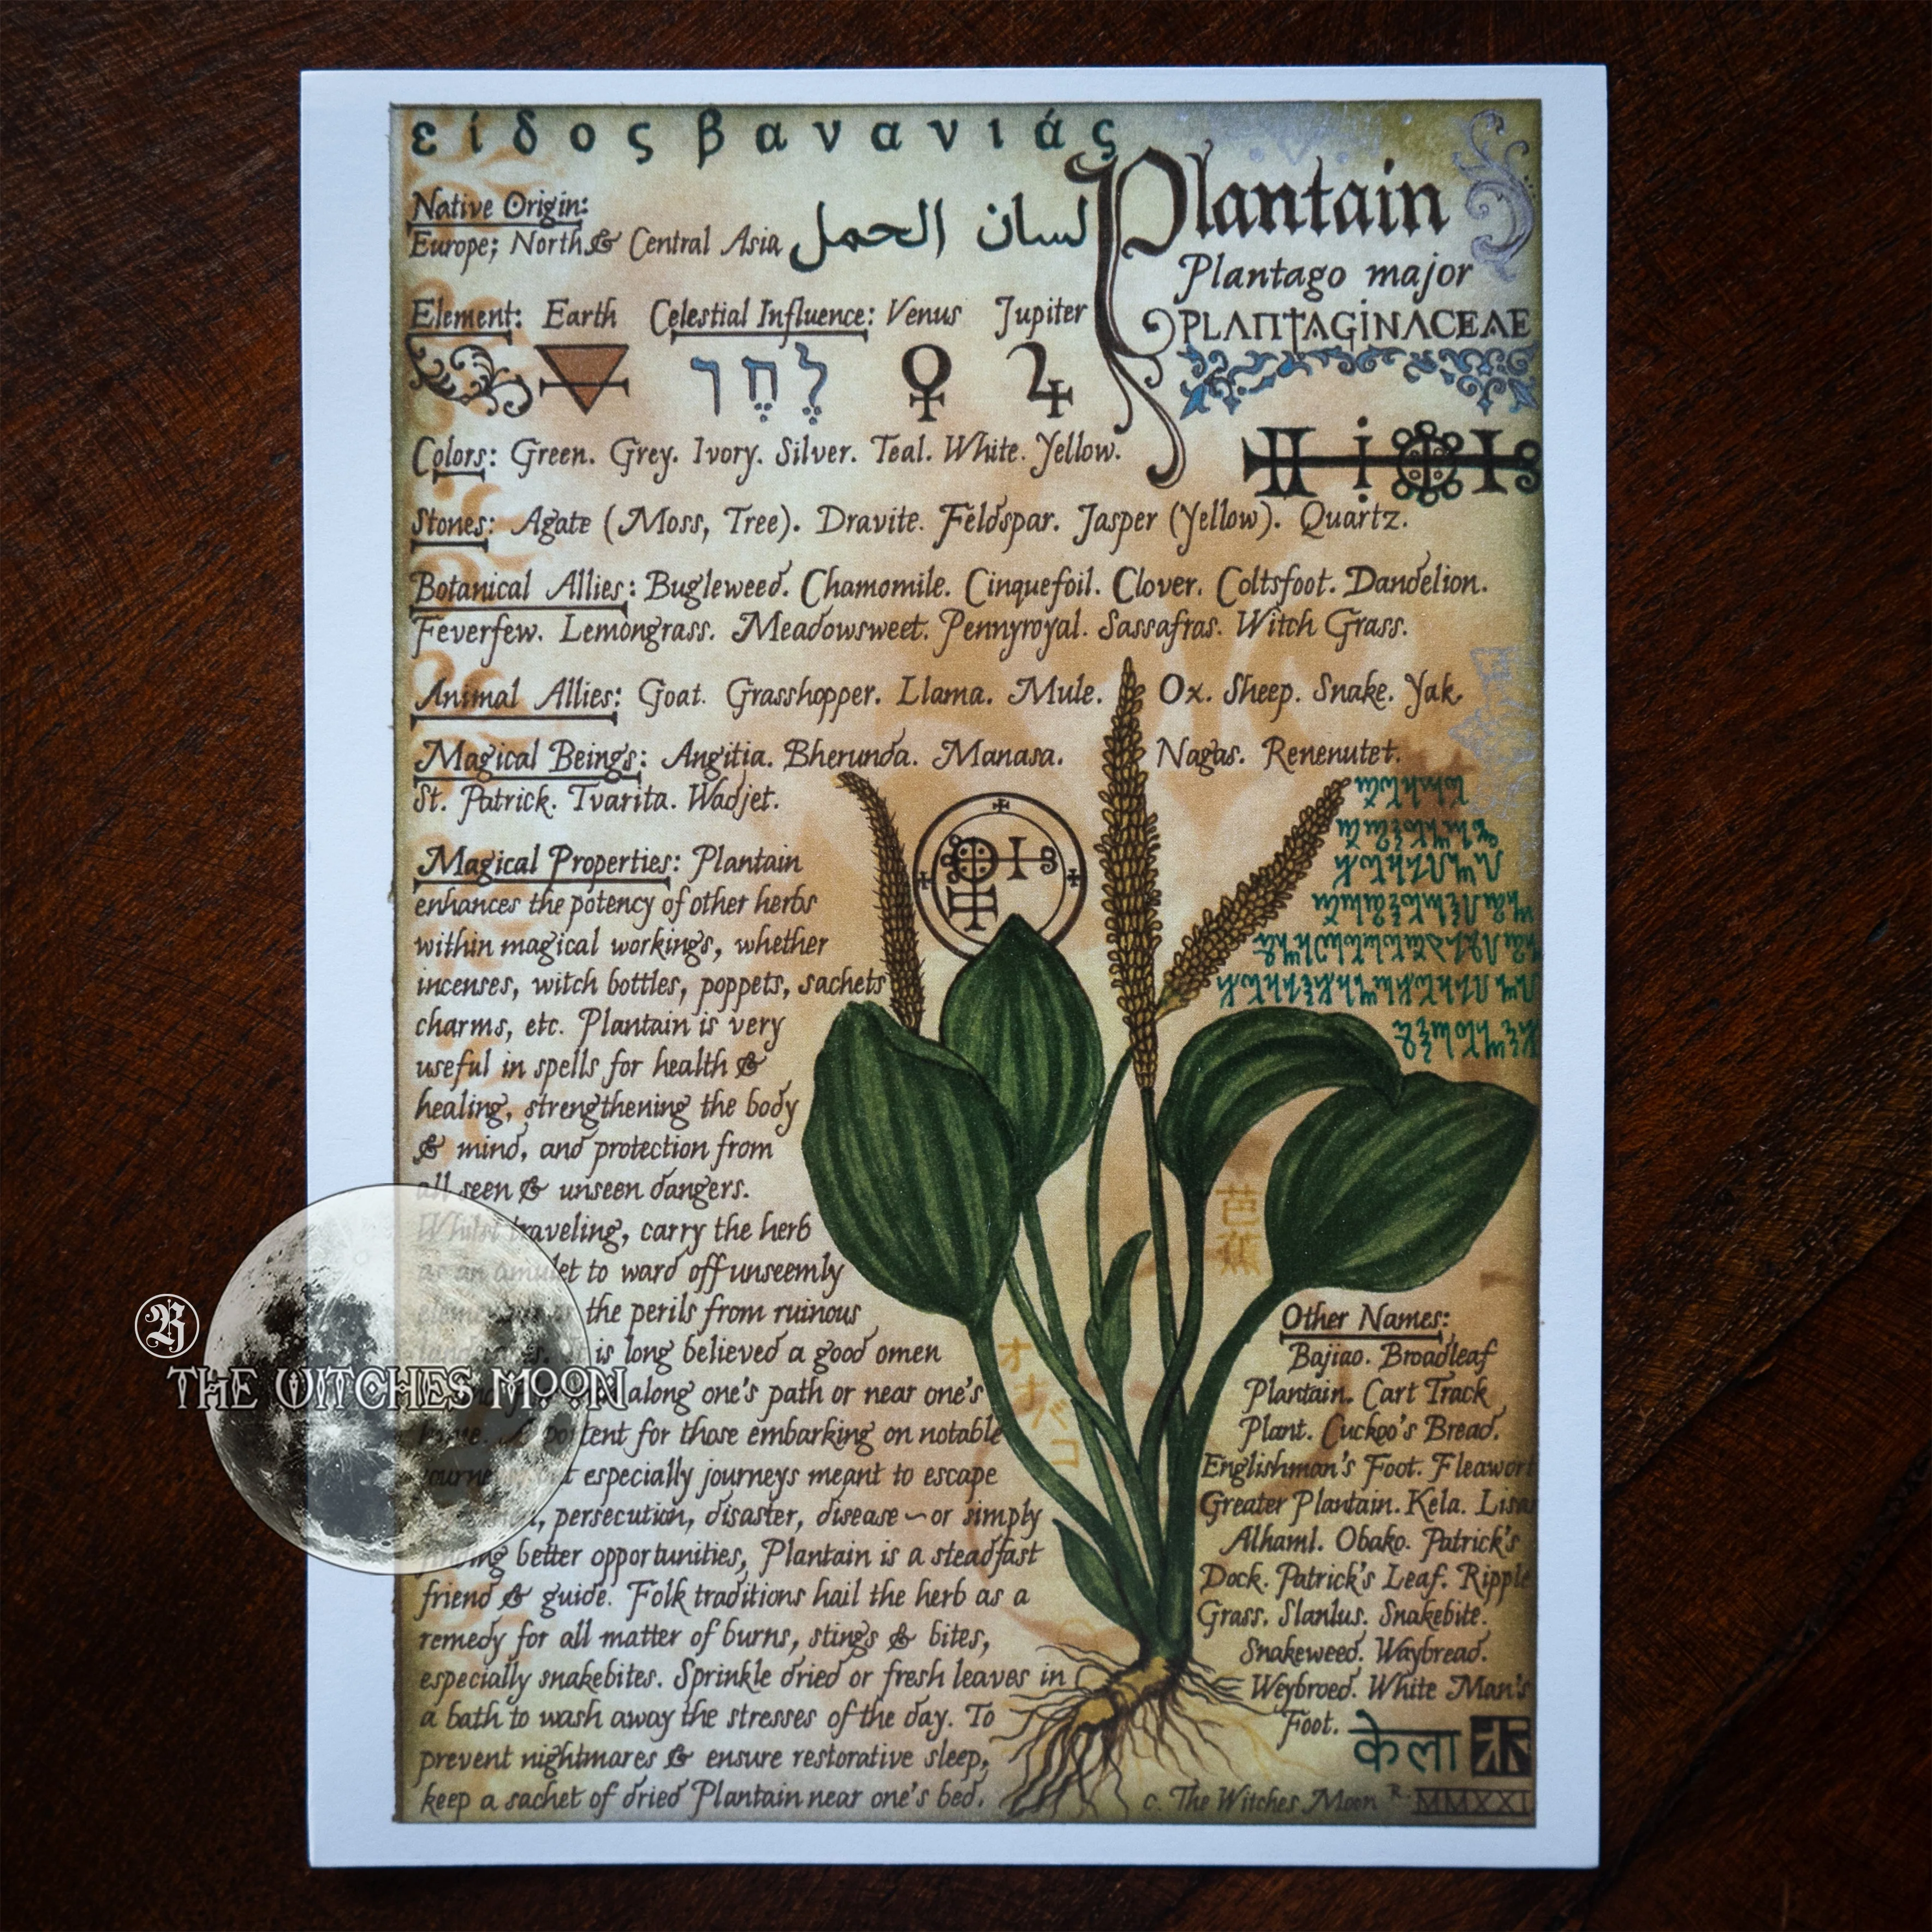 είδος βανανιάς
Plantain
Plantago major
PLANTAGINACEAE
لسان الحمل
Native Origin:
Europe; North & Central Asia
Element: Earth Celestial Influence: Venus Jupiter
לֶחֶך
Colors: Green. Grey. Ivory. Silver. Teal. White. Yellow.
Stones: Agate (Moss, Tree). Dravite. Feldspar. Jasper (Yellow). Quartz.
Botanical Allies: Bugleweed. Chamomile. Cinquefoil. Clover. Coltsfoot. Dandelion.
Feverfew. Lemongrass. Meadowsweet. Pennyroyal. Sassafras. Witch Grass.
Animal Allies: Goat. Grasshopper. Llama. Mule. Ox. Sheep. Snake. Yak.
Magical Beings: Angitia. Bherunda. Manasa. Nagas. Renenutet.
St. Patrick. Tvarita. Wadjet.
Magical Properties: Plantain
enhances the potency of other herbs
within magical workings, whether
incenses, witch bottles, poppets, sachets
charms, etc. Plantain is very
useful in spells for health &
healing, strengthening the body
& mind, and protection from
all seen & unseen dangers.
Whilst traveling, carry the herb
as an amulet to ward off unseemly
the perils from ruinous
is long believed a good omen
along one's path or near one's
portent for those embarking on notable
especially journeys meant to escape
persecution, disaster, disease ~ or simply
finding better opportunities, Plantain is a steadfast
friend & guide. Folk traditions hail the herb as a
remedy for all matter of burns, stings & bites,
especially snakebites. Sprinkle dried or fresh leaves in
a bath to wash away the stresses of the day. To
prevent nightmares & ensure restorative sleep,
keep a sachet of dried Plantain near one's bed.
芭蕉
オオバコ
Other Names:
Bajiao. Broadleaf
Plantain. Cart Track
Plant. Cuckoo's Bread.
Englishman's Foot. Fleawort
Greater Plantain. Kela. Lisan
Alhaml. Obako. Patrick's
Dock. Patrick's Leaf. Ripple
Grass. Slanlus. Snakebite.
Snakeweed. Waybread.
Weybroed. White Man's
Foot.
केला
c. The Witches Moon R. MMXXI
THE WITCHES MOON